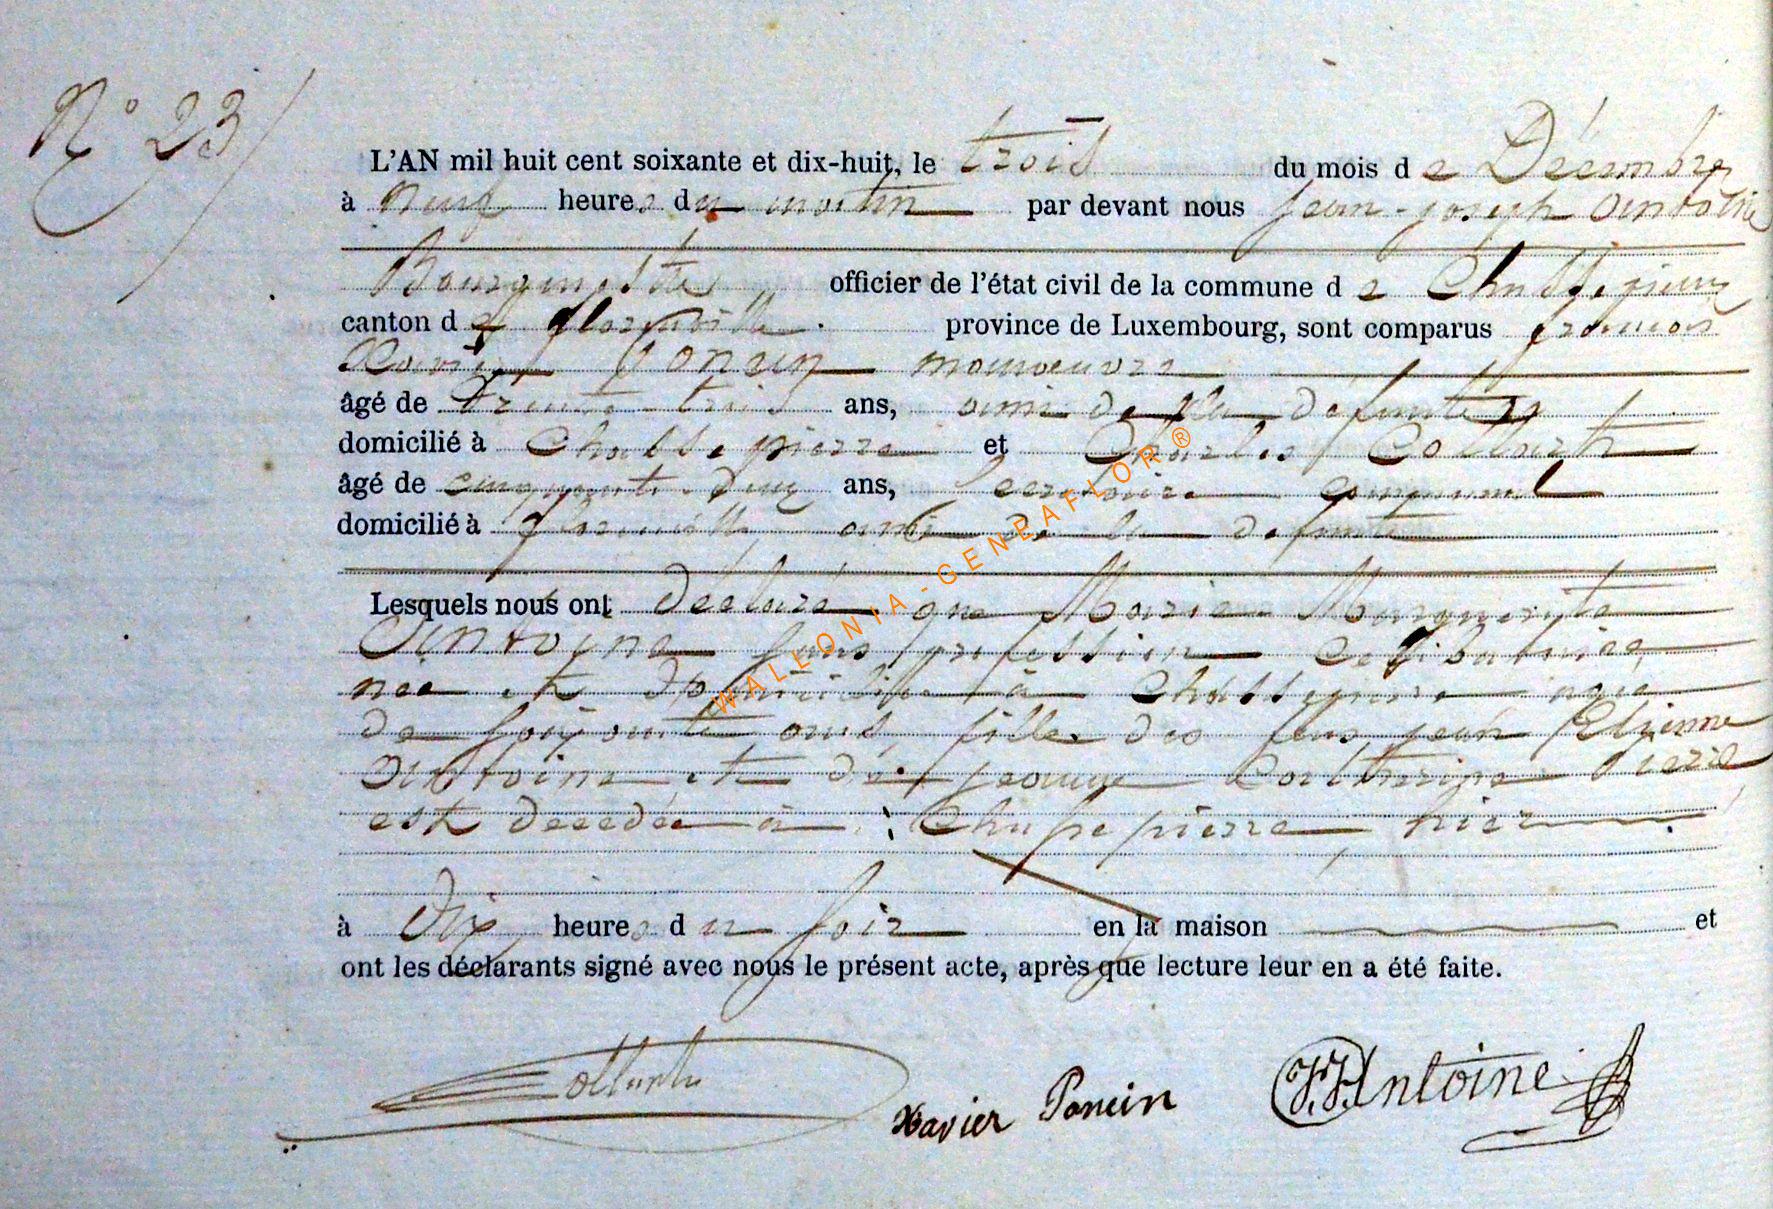 N° 23/
L'AN mil huit cent soixante et dix-huit, le trois du mois de Décembre
à neuf heures du matin par devant nous Jean-Joseph Antoine
Bourgmestre officier de l'état civil de la commune de Chassepierre
canton de Florenville province de Luxembourg, sont comparus François
Xavier Poncin manoeuvre
âgé de trente-trois ans, ami de la défunte
domicilié à Chassepierre et Charles Collart
âgé de cinquante-deux ans, Secrétaire communal
domicilié à Florenville ami de la défunte
Lesquels nous ont déclaré que Marie Marguerite
Antoine sans profession célibataire
née et domiciliée à Chassepierre agée
de soixante ans, fille des feus Jean Etienne
Antoine et de Jeanne Catherine
est décédée à Chassepierre, hier
à dix heures du soir en la maison et
ont les déclarants signé avec nous le présent acte, après que lecture leur en a été faite.
Xavier Poncin J.J. Antoine
WALLONIA-GENEAFLOR®